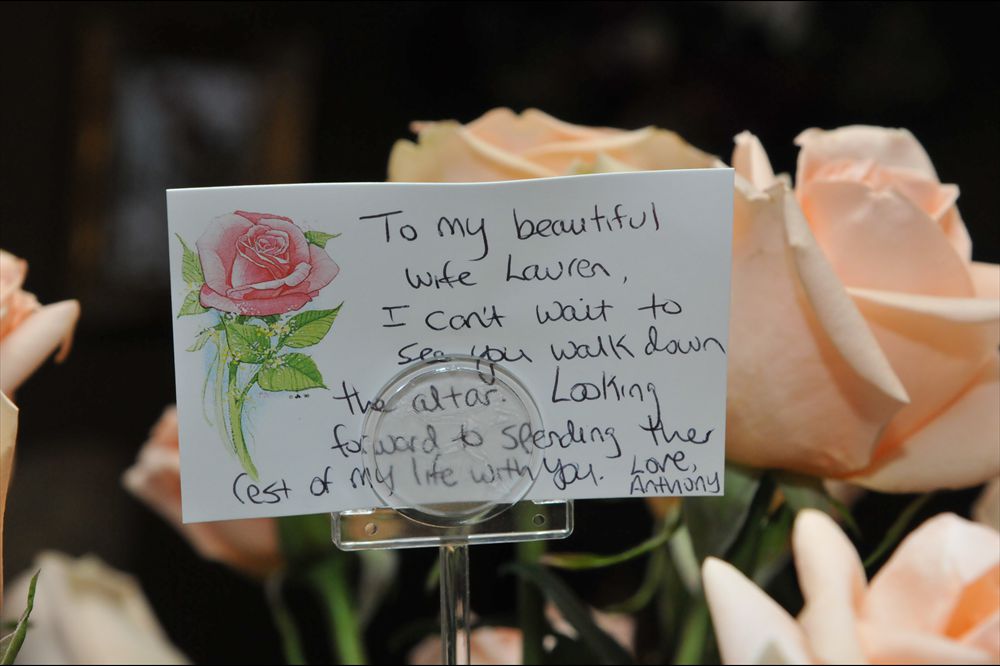 To my beautiful
wife Lauren,
I can't wait to
see you walk down
the altar. Looking
forward to spending ther
rest of my life with you. Love,
Anthony